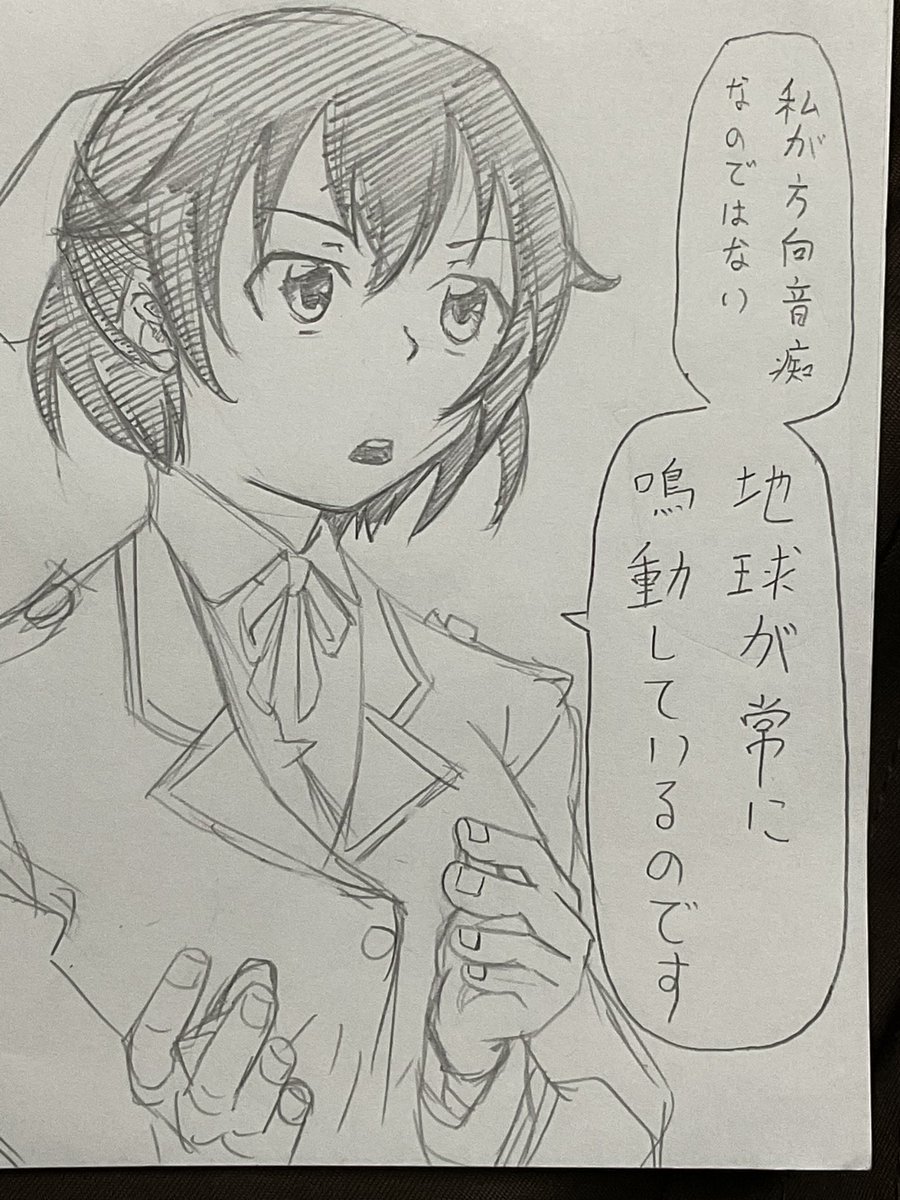 私が方向音痴
なのではない
地球が常に
鳴動しているのです